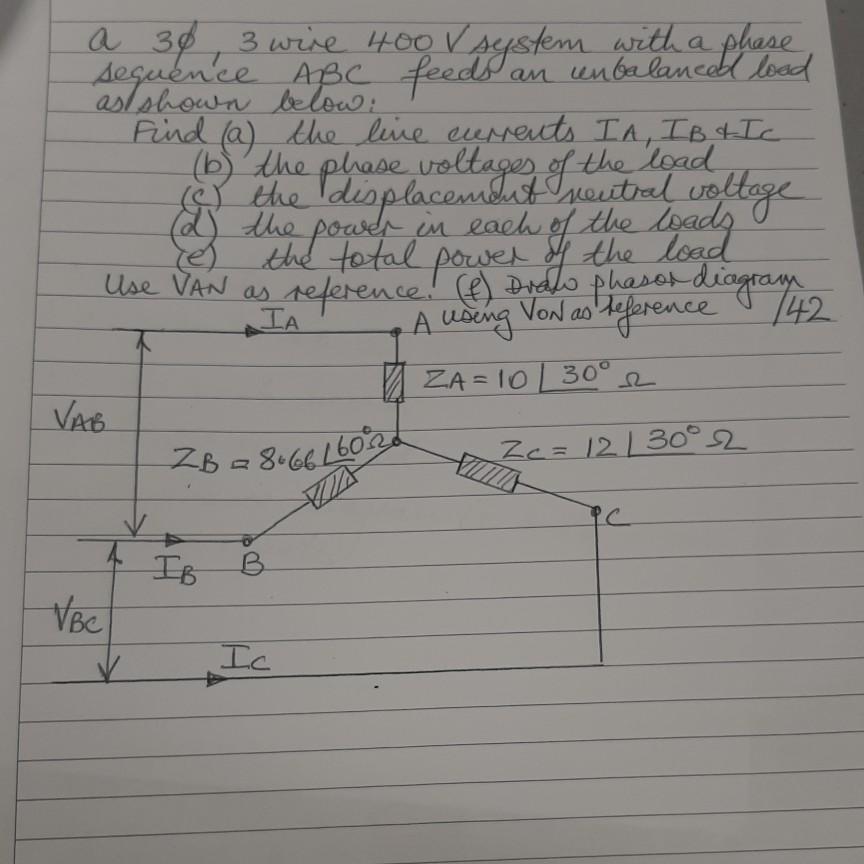 a 3ϕ, 3 wire 400 V system with a phase
sequence ABC feeds an unbalanced load
as shown below:
Find (a) the line currents IA, IB & IC
(b) the phase voltages of the load
(c) the displacement neutral voltage
(d) the power in each of the loads
(e) the total power of the load
Use VAN as reference. (f) Draw phasor diagram
using VON as reference /42
IA
A
ZA = 10∠30° Ω
VAB
ZB = 8.66∠60° Ω
ZC = 12∠30° Ω
C
IB
B
VBC
IC